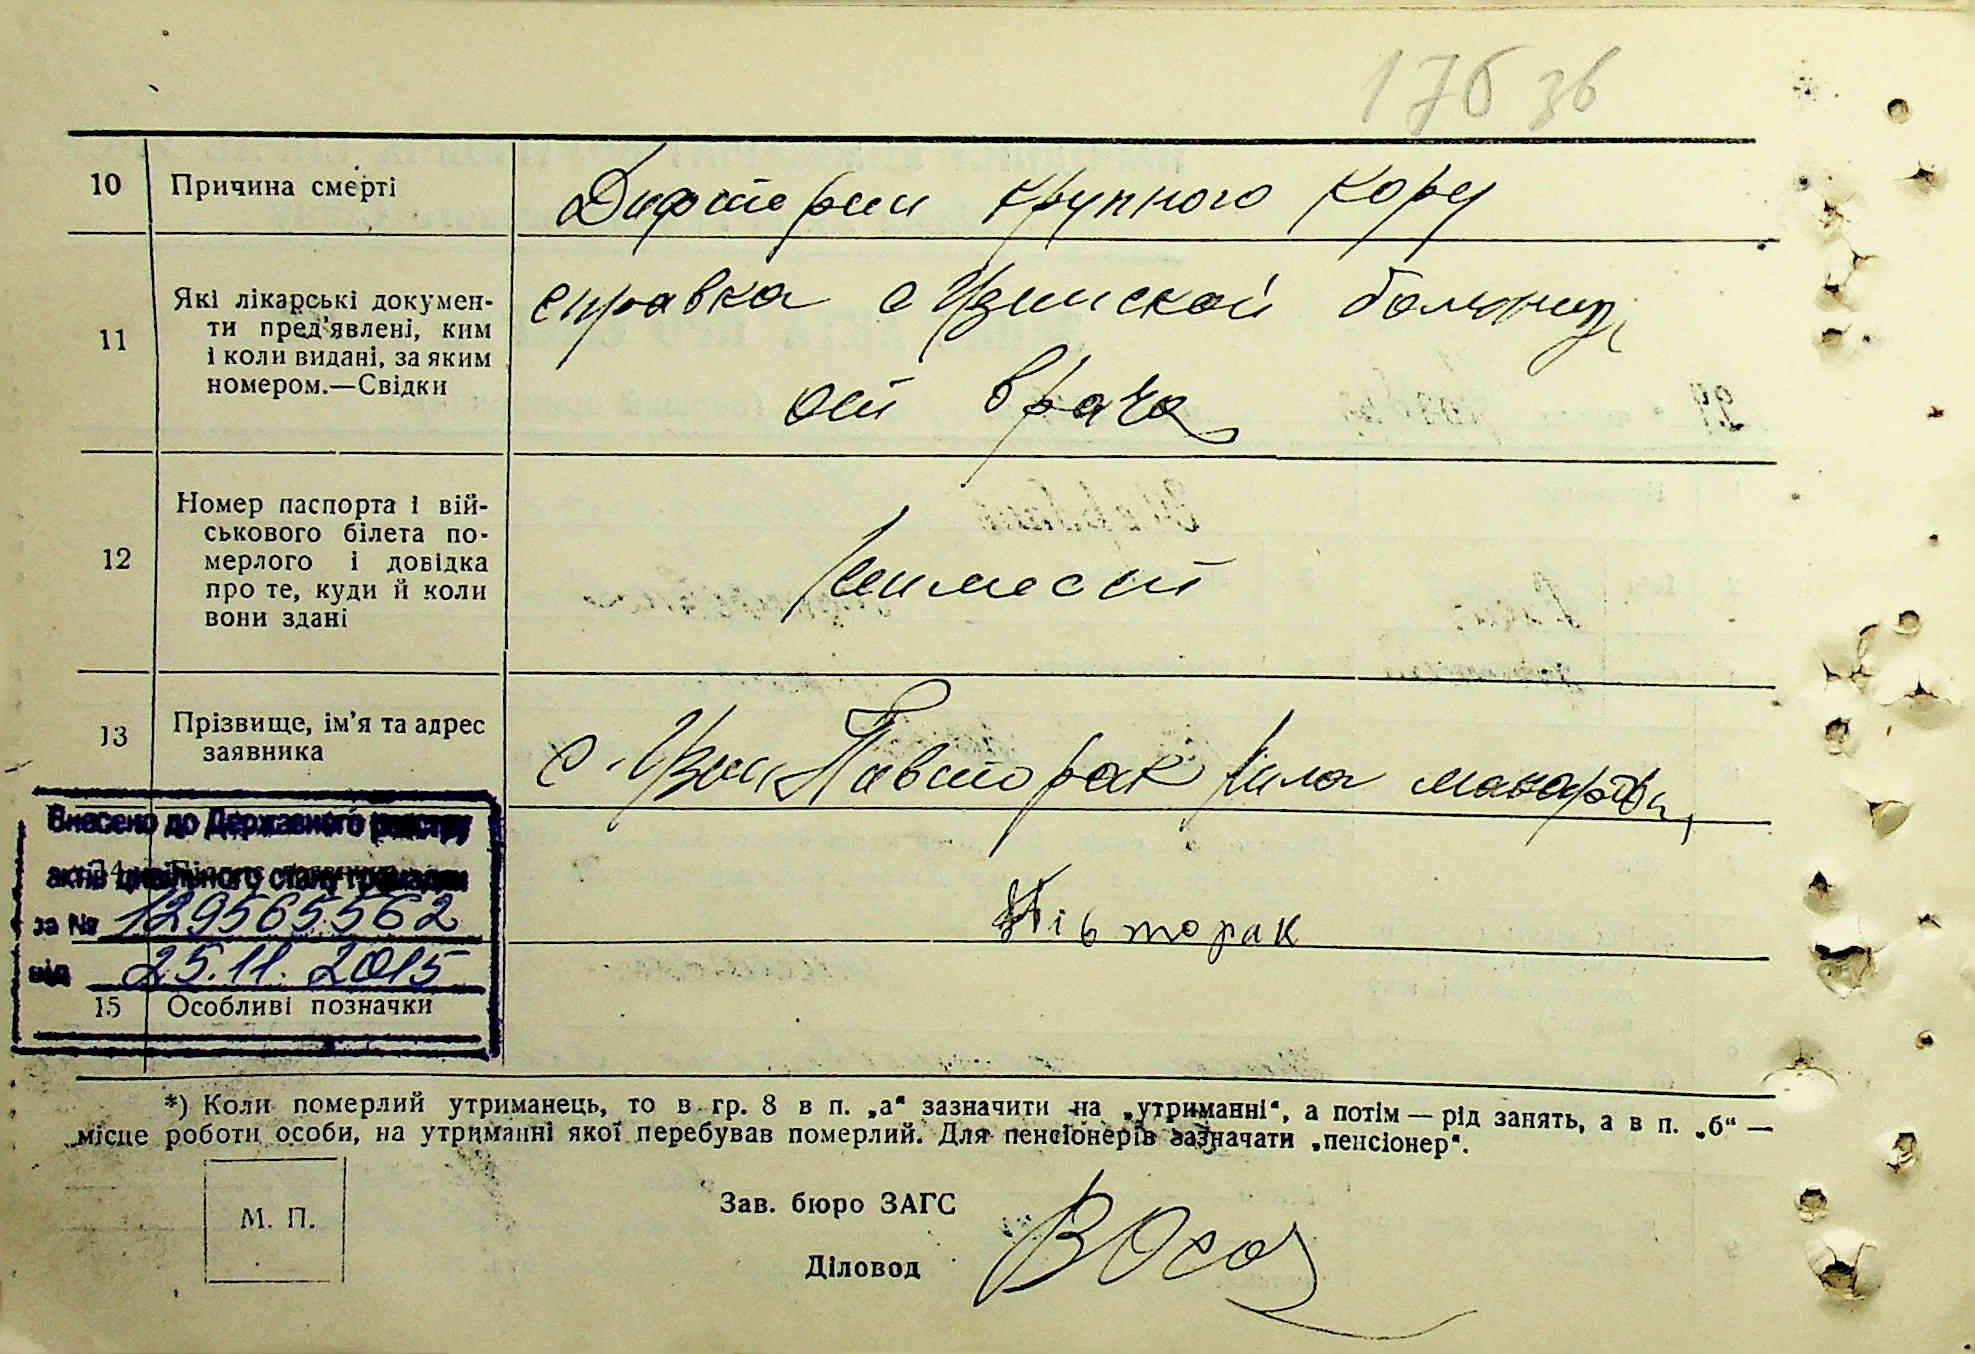 176 зв
10 Причина смерті
Дифтерии крупного кору
11 Які лікарські докумен-
ти пред'явлені, ким
і коли видані, за яким
номером.—Свідки
справка с Узинской больниц
от врача
12 Номер паспорта і вій-
ськового білета по-
мерлого і довідка
про те, куди й коли
вони здані
13 Прізвище, ім'я та адрес
заявника
с. Узин Павторак
Внесено до Державного реєстру
актів цивільного стану громадян
за № 129565562
від 25.11.2015
Півторак
15 Особливі позначки
*) Коли померлий утриманець, то в гр. 8 в п. „а“ зазначити на „утриманні“, а потім — рід занять, а в п. „б“ —
місце роботи особи, на утриманні якої перебував померлий. Для пенсіонерів зазначати „пенсіонер“.
М. П.
Зав. бюро ЗАГС
Діловод